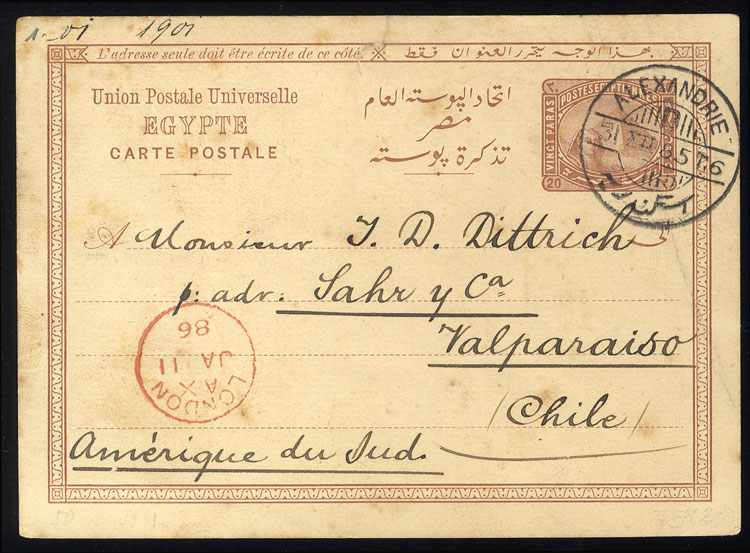 1-01 1901
L'adresse seule doit être écrite de ce côté. بهذا الوجه يتحرر العنوان فقط
Union Postale Universelle
EGYPTE
CARTE POSTALE
اتحاد البوسته العام
مصر
تذكرة بوسته
POSTES EGYPTIENNES
VINGT PARAS
20
ALEXANDRIE
31 XII 85 T.6
A Monsieur J. D. Dittrich
p: adr: Sahr y Ca
Valparaiso
(Chile)
Amérique du Sud.
LONDON
AX
JA 11
86